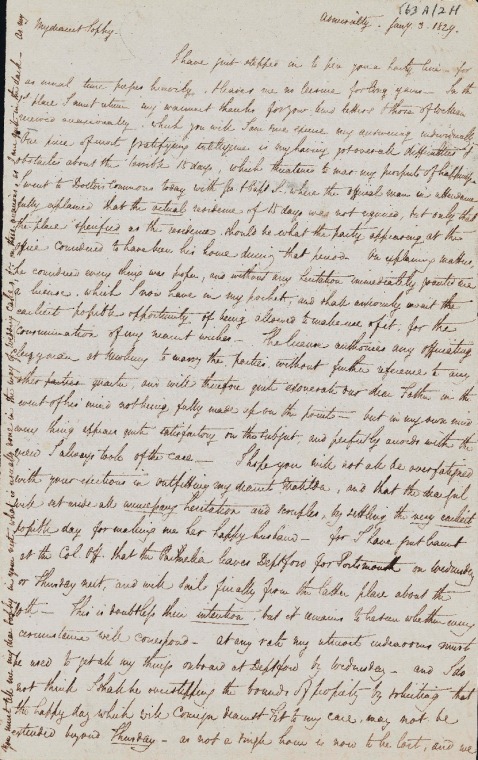 563 A/2 H
Admiralty. Jany. 3. 1829.
My dearest Sophy.
I have just stepped in to pen you a hasty line - for
as usual time presses heavily, & leaves me no leisure for long yarns - In the
1st place I must return my warmest thanks for your kind letter & those of
received occasionally, which you will I am sure excuse my answering individually
One piece of most gratifying intelligence is my having got over all difficulties &
obstacles about the terrible 15 days, which threatened to mar my prospects of happiness
I went to Doctors Commons today with Jos & Capt S. where the official man in attendance
fully explained that the actual residence of 15 days was not required, but only that
the place specified as the residence should be what the party appearing at the
office considered to have been his home during that period. On explaining matters,
he considered every thing was proper, and without any hesitation immediately granted me
a license, which I now have in my pocket, and shall anxiously await the
earliest possible opportunity of being allowed to make use of it, for the
consummation of my dearest wishes - The license authorises any officiating
clergyman at to marry the parties without further reference to any
other parties quarter, and will therefore quite exonerate our dear Father in the
event of his mind not being fully made up on the point - but in my own mind
every thing appears quite satisfactory on the subject, and perfectly accords with the
view I always took of the case - I hope you will not all be overfatigued
with your exertions in outfitting my dearest Matilda, and that the dear girl
will set aside all unnecessary hesitation and scruples, by settling the very earliest
possible day for making me her happy husband - for I have just learnt
at the Col. Off. that the Parmelia leaves Deptford for Portsmouth on Wednesday
or Thursday next, and will sail finally from the latter place about the
- This is doubtless their intention, but it remains to be seen whether every
circumstance will correspond - at any rate my utmost endeavours must
be used to get all my things on board at Deptford by Wednesday - and I do
not think I shall be overstepping the bounds of propriety by soliciting that
the happy day which will consign dearest to my care, may not be
extended beyond Thursday - as not a single hour is now to be lost, and we
You must tell me my dear Sophy in your next, what is really done in the way of wedding cakes, &c - in these matters I am quite in the dark - as my